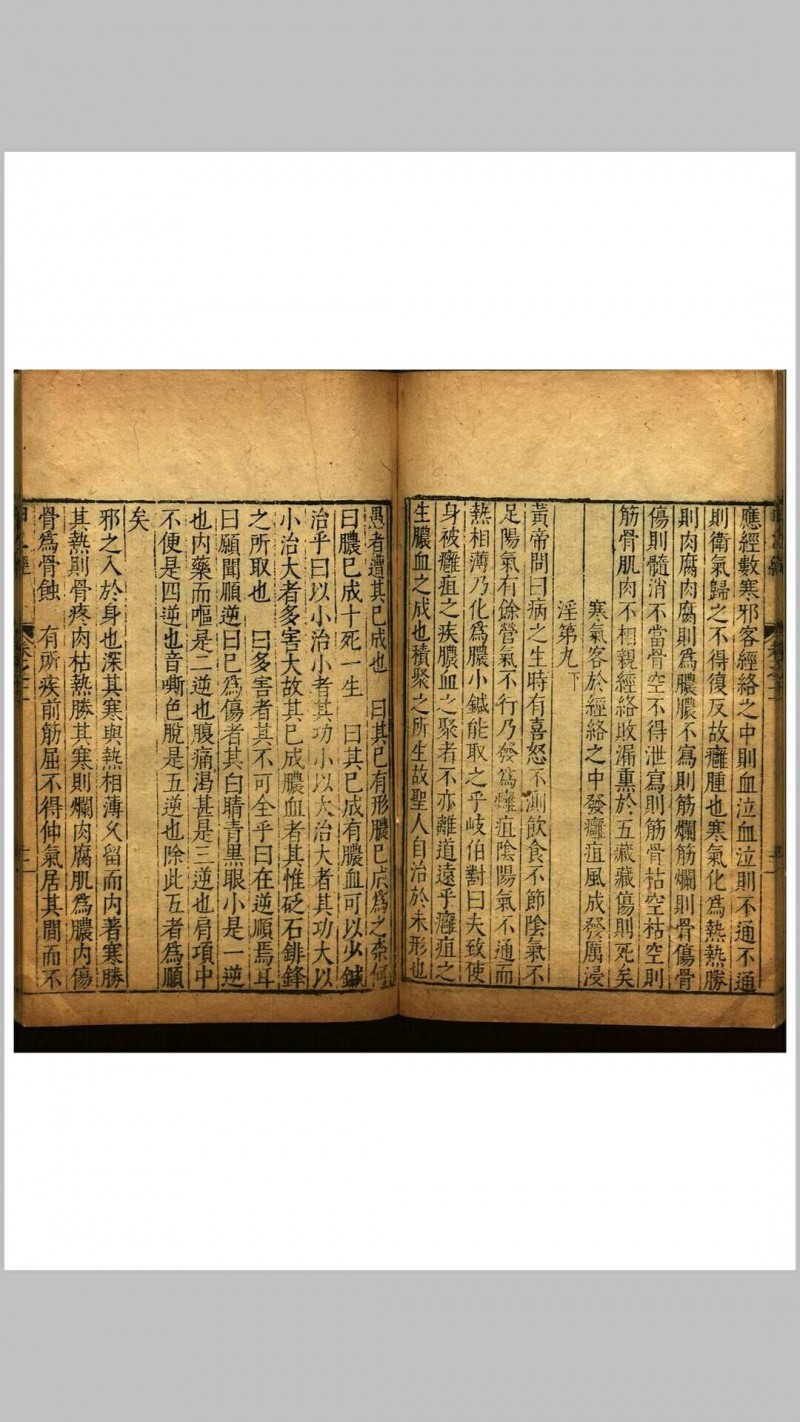 應經數寒邪客經絡之中則血泣血泣則不通不通
則衛氣歸之不得復反故癰腫也寒氣化為熱熱勝
則肉腐肉腐則為膿膿不寫則筋爛筋爛則骨傷骨
傷則髓消不當骨空不得泄寫則筋骨枯空枯空則
筋骨肌肉不相親經絡敗漏熏於五藏藏傷則死矣
寒氣客於經絡之中發癰疽風成發厲浸
淫第九下
黃帝問曰病之生時有喜怒不測飲食不節陰氣不
足陽氣有餘營氣不行乃發為癰疽陰陽氣不通而
熱相薄乃化為膿小鍼能取之乎岐伯對曰夫致使
身被癰疽之疾膿血之聚者不亦離道遠乎癰疽之
生膿血之成也積聚之所生故聖人自治於未形也
愚者遭其已成也 曰其已有形膿已成為之奈何
曰膿已成十死一生 曰其已成有膿血可以少鍼
治乎曰以小治小者其功小以大治大者其功大以
小治大者多害大故其已成膿血者其惟砭石鈹鋒
之所取也 曰多害者其不可全乎曰在逆順焉耳
曰願聞順逆曰已為傷者其白睛青黑眼小是一逆
也內藥而嘔是二逆也腹痛渴甚是三逆也肩項中
不便是四逆也音嘶色脫是五逆也除此五者為順
矣
邪之入於身也深其寒與熱相薄久留而內著寒勝
其熱則骨疼肉枯熱勝其寒則爛肉腐肌為膿內傷
骨為骨蝕 有所疾前筋屈不得伸氣居其間而不